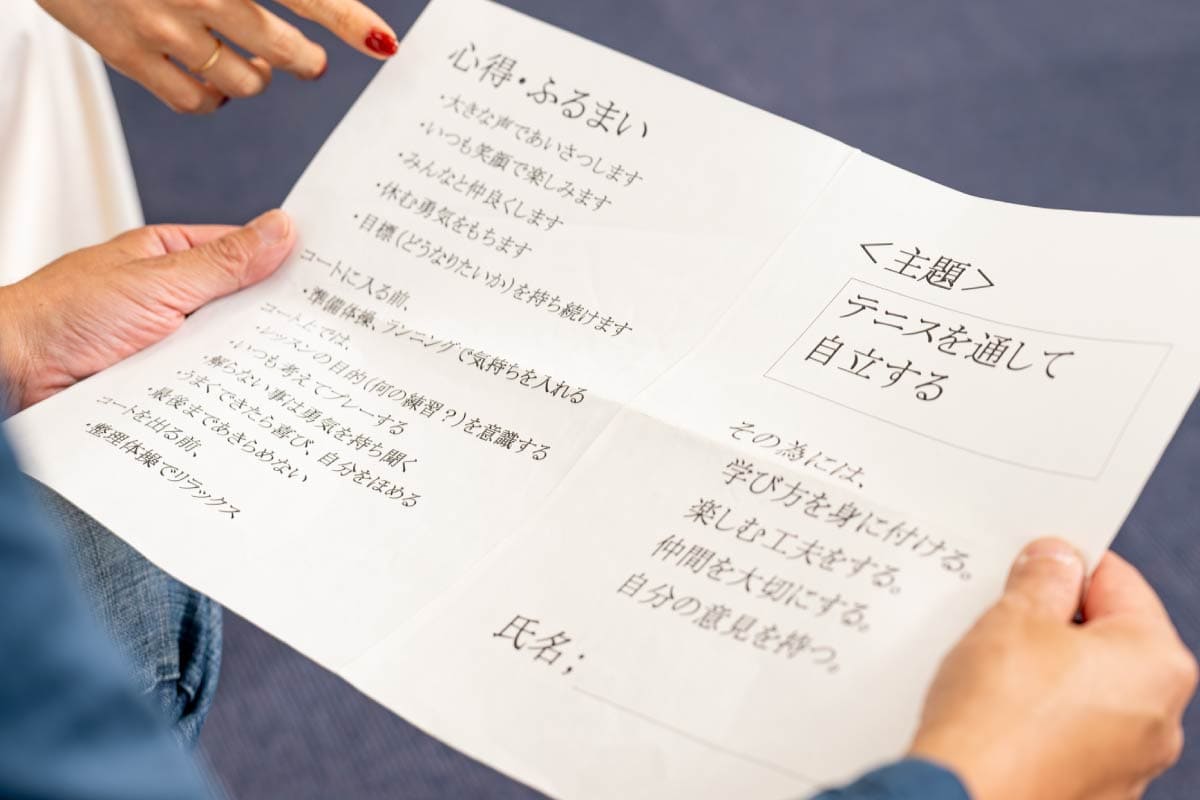 心得・ふるまい
・大きな声であいさつします
・いつも笑顔で楽しみます
・みんなと仲良くします
・休む勇気をもちます
・目標（どうなりたいか）を持ち続けます
コートに入る前、
・準備体操、ランニングで気持ちを入れる
コート上では、
・レッスンの目的（何の練習？）を意識する
・いつも考えてプレーする
・解らない事は勇気を持ち聞く
・うまくできたら喜び、自分をほめる
・最後まであきらめない
コートを出る前、
・整理体操でリラックス
＜主題＞
テニスを通して
自立する
その為には、
学び方を身に付ける。
楽しむ工夫をする。
仲間を大切にする。
自分の意見を持つ。
氏名；